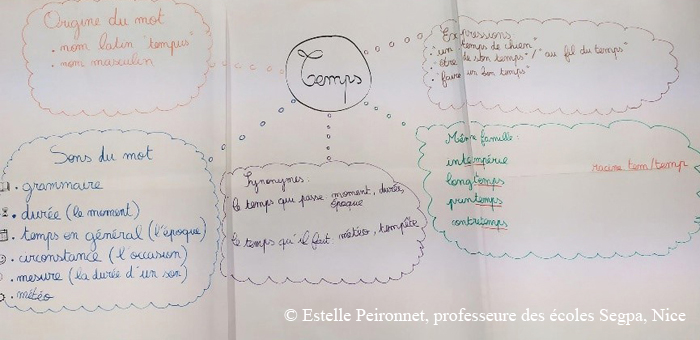 Origine du mot
. nom latin "tempus"
. nom masculin
Temps
Expressions
. "un temps de chien"
. "être de son temps" / "au fil du temps"
. "faire un bon temps"
Sens du mot
. grammaire
. durée (le moment)
. temps en général (l'époque)
. circonstance (l'occasion)
. mesure (la durée d'un son)
. météo
Synonymes:
le temps qui passe moment, durée,
époque
le temps qu'il fait: météo, tempête
Même famille:
intempérie
longtemps
printemps
contretemps
racine tem/temp
© Estelle Peironnet, professeure des écoles Segpa, Nice